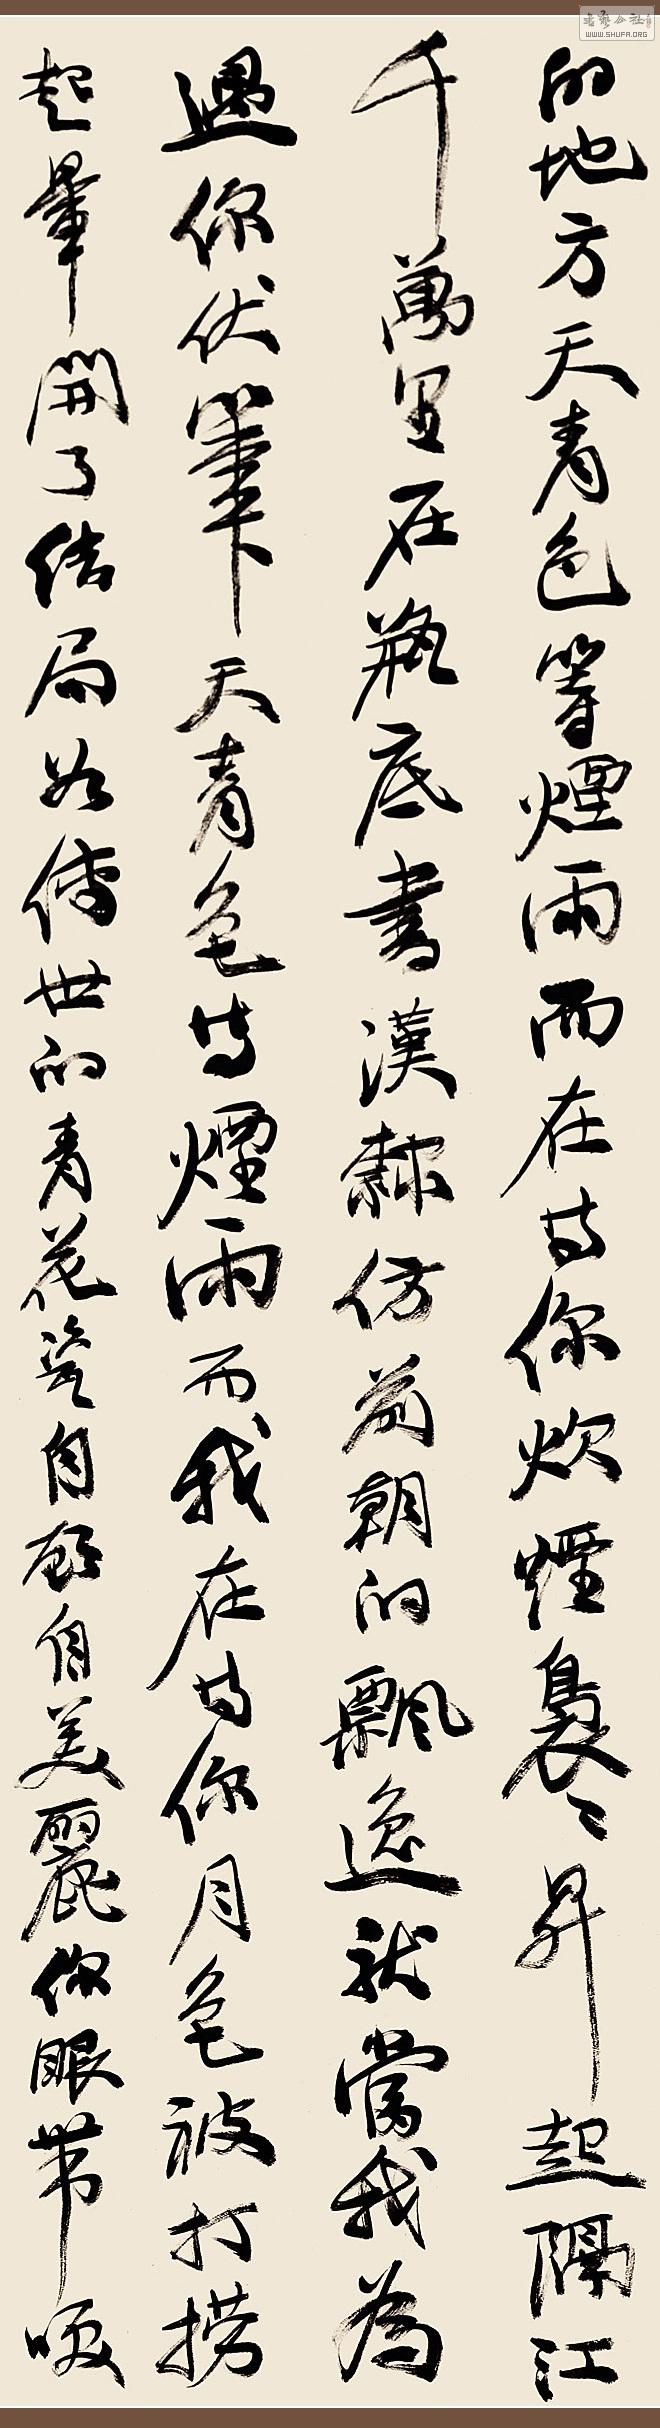 書藝公社
WWW.SHUFA.ORG
的地方天青色等煙雨而在等你炊煙裊々昇起隔江
千萬里在瓶底書漢隸仿前朝的飄逸就當我為
遇你伏筆下天青色等煙雨而我在等你月色被打撈
起暈開了結局如傳世的青花瓷自顧自美麗你眼帶咲